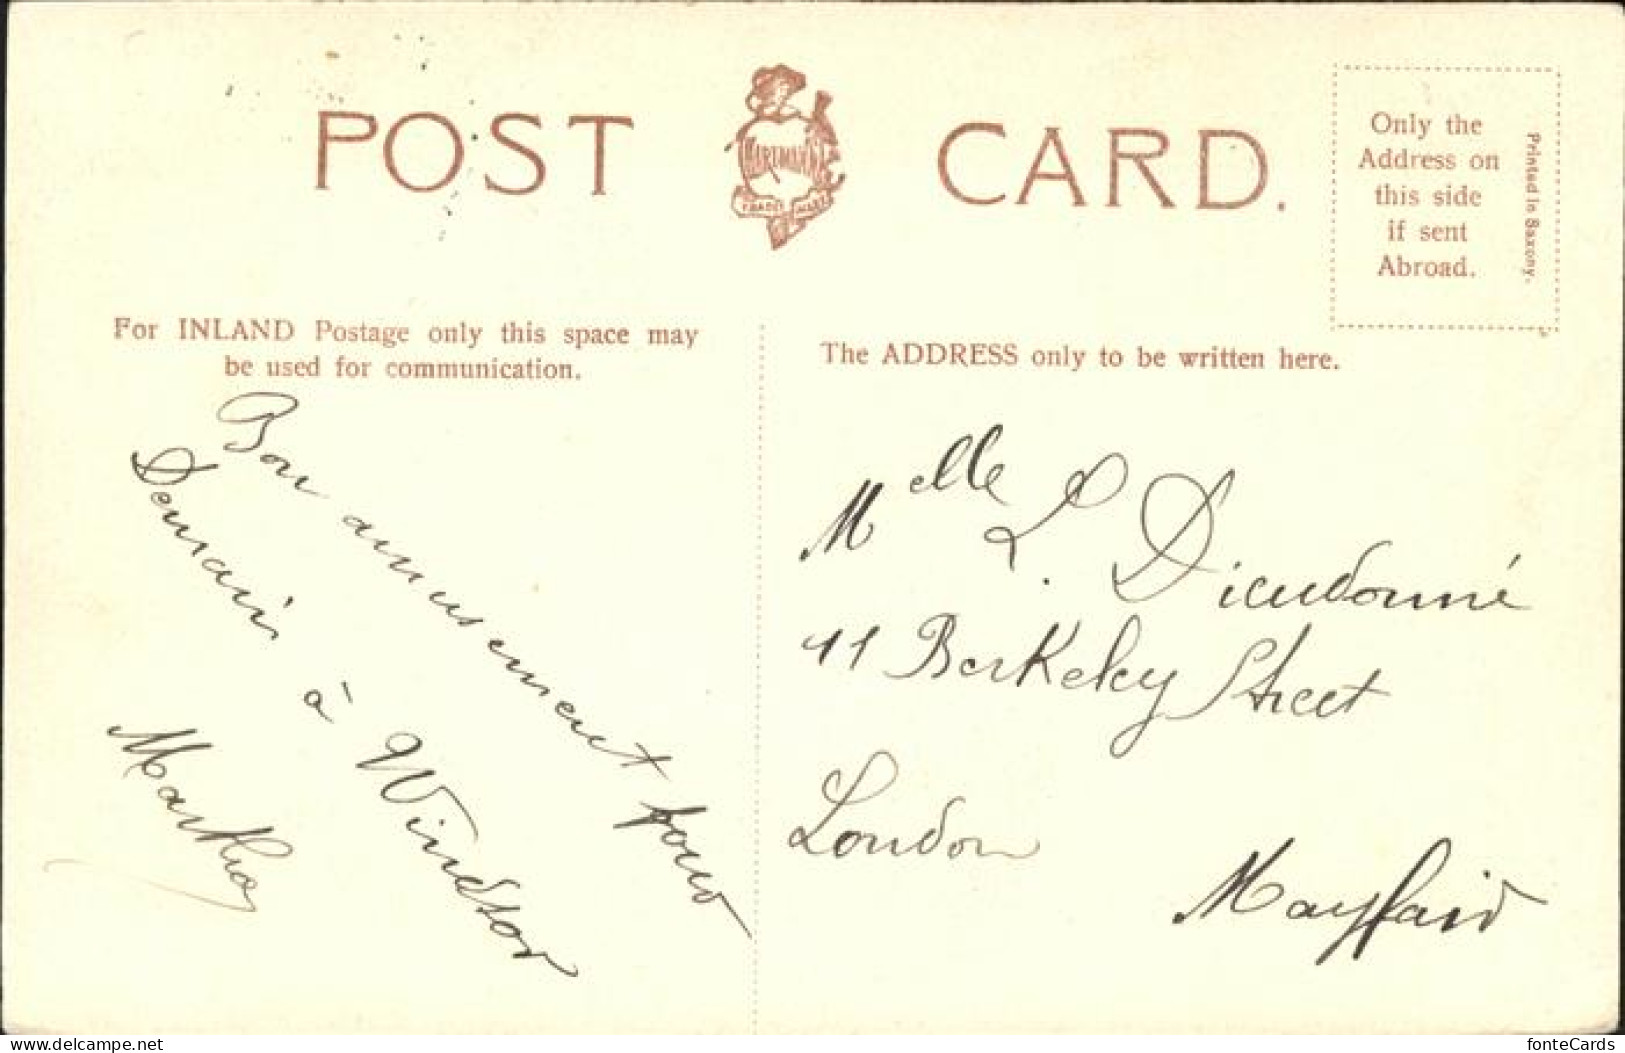 POST CARD.
HARTMANN
TRADE MARK
Only the
Address on
this side
if sent
Abroad.
Printed in Saxony.
For INLAND Postage only this space may
be used for communication.
The ADDRESS only to be written here.
Bon amusement pour
Demain à Windsor
Marthe
Melle L. Dieudonné
11 Berkeley Street
London
Mayfair
www.delcampe.net
fonteCards